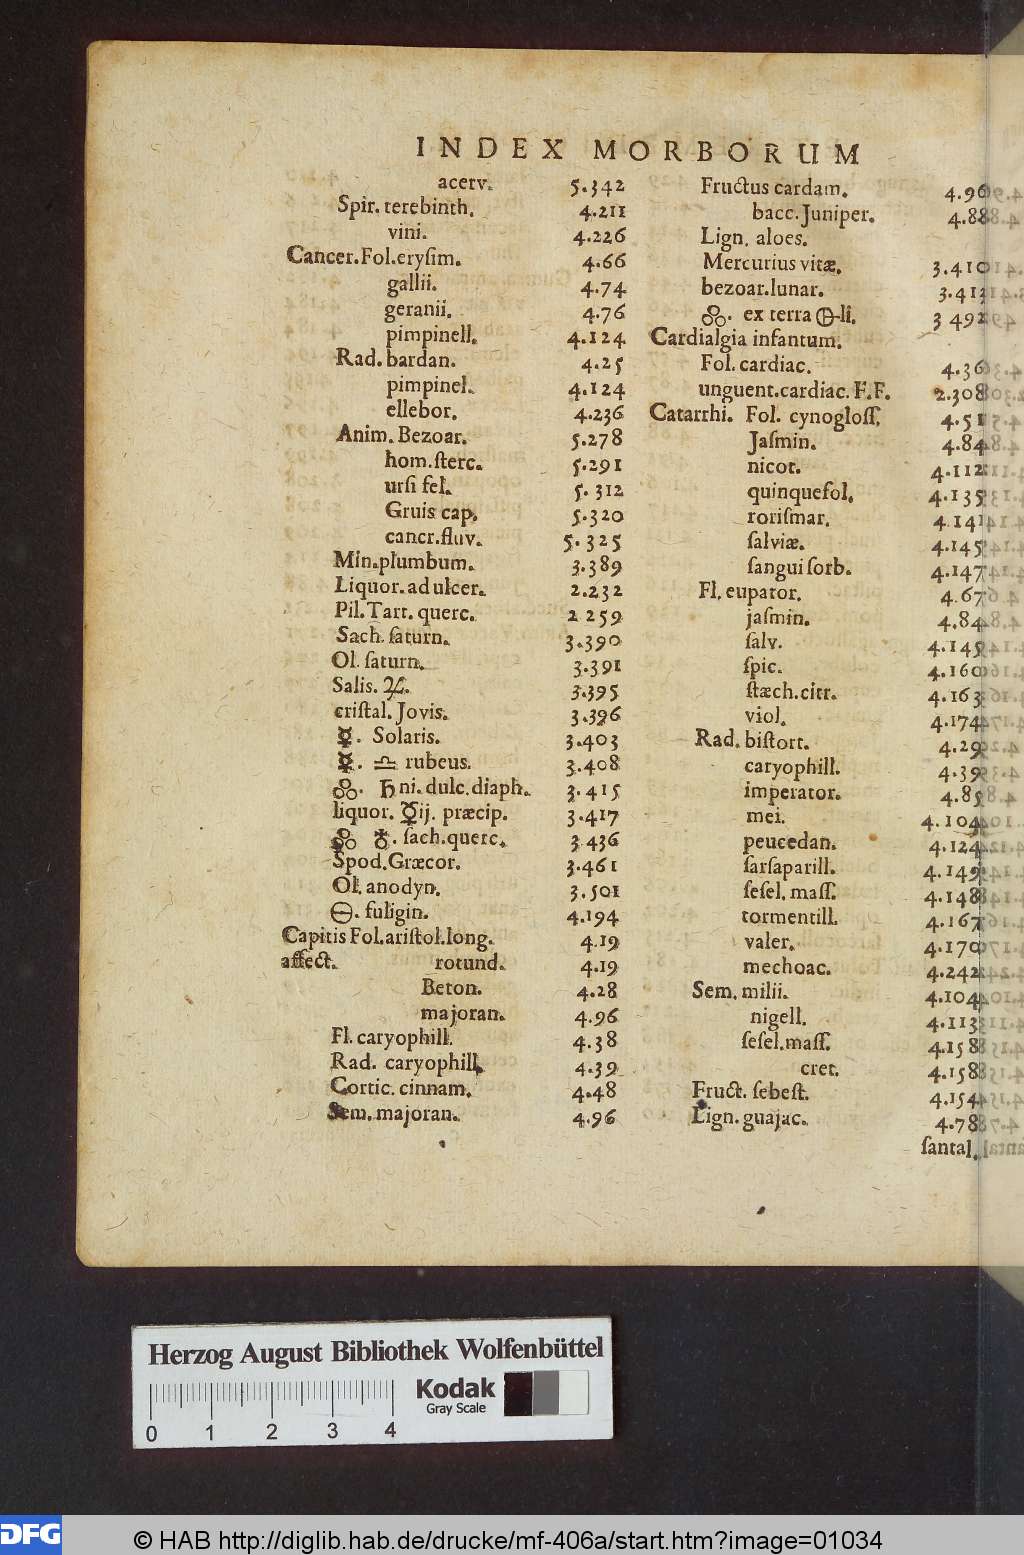 INDEX MORBORUM
acerv. 5.342
Spir. terebinth. 4.211
vini. 4.226
Cancer. Fol. eryſim. 4.66
gallii. 4.74
geranii. 4.76
pimpinell. 4.124
Rad. bardan. 4.25
pimpinel. 4.124
ellebor. 4.236
Anim. Bezoar. 5.278
hom. ſterc. 5.291
urſi fel. 5.312
Gruis cap. 5.320
cancr. fluv. 5.325
Min. plumbum. 3.389
Liquor. ad ulcer. 2.232
Pil. Tart. querc. 2 259
Sach. ſaturn. 3.390
Ol. ſaturn. 3.391
Salis. ♃. 3.395
criſtal. Jovis. 3.396
☿. Solaris. 3.403
☿. ♎ rubeus. 3.408
ꝏ. ♄ni. dulc. diaph. 3.415
liquor. ☿ij. præcip. 3.417
♁. ſach. querc. 3 436
Spod. Græcor. 3.461
Ol. anodyn. 3.501
🜔. fuligin. 4.194
Capitis Fol. ariſtol. long. 4.19
affect. rotund. 4.19
Beton. 4.28
majoran. 4.96
Fl. caryophill. 4.38
Rad. caryophill. 4.39
Cortic. cinnam. 4.48
Sem. majoran. 4.96
Fructus cardam. 4.96
bacc. Juniper. 4.88
Lign. aloes.
Mercurius vitæ. 3.410
bezoar. lunar. 3.413
ex terra 🜕li. 3 492
Cardialgia infantum.
Fol. cardiac. 4.36
unguent. cardiac. F. F. 2.308
Catarrhi. Fol. cynogloſſ. 4.51
Jaſmin. 4.84
nicot. 4.112
quinquefol. 4.135
roriſmar. 4.141
ſalviæ. 4.145
ſangui ſorb. 4.147
Fl. eupator. 4.67
jaſmin. 4.84
ſalv. 4.145
ſpic. 4.160
ſtæch. citr. 4.163
viol. 4.174
Rad. biſtort. 4.29
caryophill. 4.39
imperator. 4.85
mei. 4.104
peucedan. 4.124
ſarſaparill. 4.149
ſeſel. maſſ. 4.148
tormentill. 4.167
valer. 4.170
mechoac. 4.242
Sem. milii. 4.104
nigell. 4.113
ſeſel. maſſ. 4.158
cret. 4.158
Fruct. ſebeſt. 4.154
Lign. guajac. 4.78
ſantal.
Herzog August Bibliothek Wolfenbüttel
Kodak
Gray Scale
0 1 2 3 4
DFG
© HAB http://diglib.hab.de/drucke/mf-406a/start.htm?image=01034